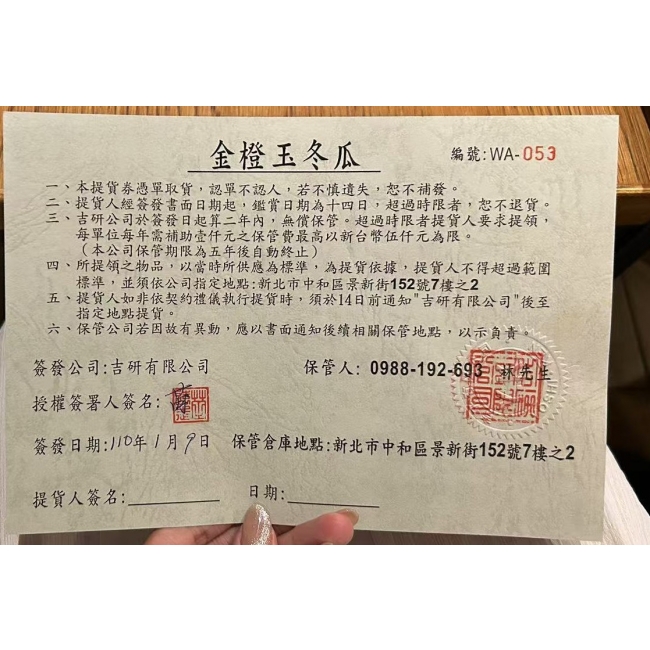 金橙玉冬瓜
編號:WA-053
一、本提貨券憑單取貨，認單不認人，若不慎遺失，恕不補發。
二、提貨人經簽發書面日期起，鑑賞日期為十四日，超過時限者，恕不退貨。
三、吉研公司於簽發日起算二年內，無償保管。超過時限者提貨人要求提領，
每單位每年需補助壹仟元之保管費最高以新台幣伍仟元為限。
（本公司保管期限為五年後自動終止）
四、所提領之物品，以當時所供應為標準，為提貨依據，提貨人不得超過範圍
標準，並須依公司指定地點:新北市中和區景新街152號7樓之2
五、提貨人如非依契約禮儀執行提貨時，須於14日前通知"吉研有限公司"後至
指定地點提貨。
六、保管公司若因故有異動，應以書面通知後續相關保管地點，以示負責。
簽發公司:吉研有限公司
保管人: 0988-192-693 林先生
授權簽署人簽名:
簽發日期:110年1月9日
保管倉庫地點:新北市中和區景新街152號7樓之2
提貨人簽名:
日期: